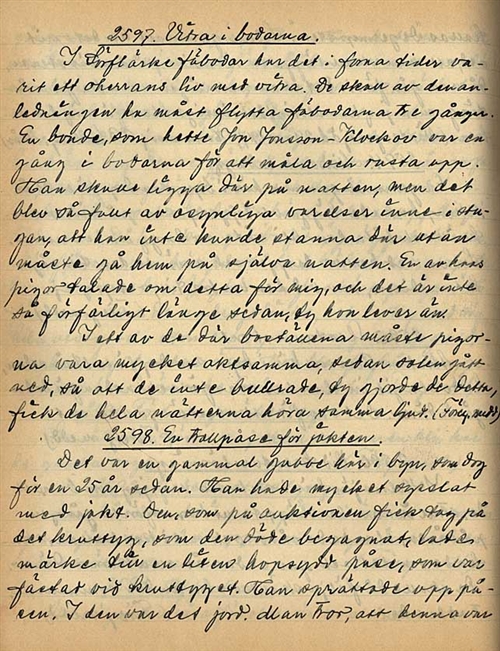 2597. Vitra i bodarna.
I Sörflärke fäbodar har det i forna tider va-
rit ett oherrans liv med vitra. De skall av den an-
ledningen ha måst flytta fäbodarna tre gånger.
En bonde, som hette Jon Jonsson-Klockov var en
gång i bodarna för att måla och rusta upp.
Han skulle ligga där på natten, men det
blev så fullt av osynliga varelser inne i stu-
gan, att han inte kunde stanna där utan
måste gå hem på själva natten. En av hans
pigor talade om detta för mig, och det är inte
så förfärligt länge sedan, ty hon lever än.
I ett av de där boställena måste pigor-
na vara mycket aktsamma, sedan solen gått
ned, så att de inte bullrade, ty gjorde de detta,
fick de hela nätterna höra samma ljud. (Föreg. medd.)
2598. En trollpåse för jakten.
Det var en gammal gubbe här i byn, som dog
för en 25 år sedan. Han hade mycket sysslat
med jakt. Den, som på auktionen fick tag på
det kruttyg, som den döde begagnat, lade
märke till en liten hopsydd påse, som var
fästad vid kruttyget. Han sprättade upp på-
sen. I den var det jord. Man tror, att denna var